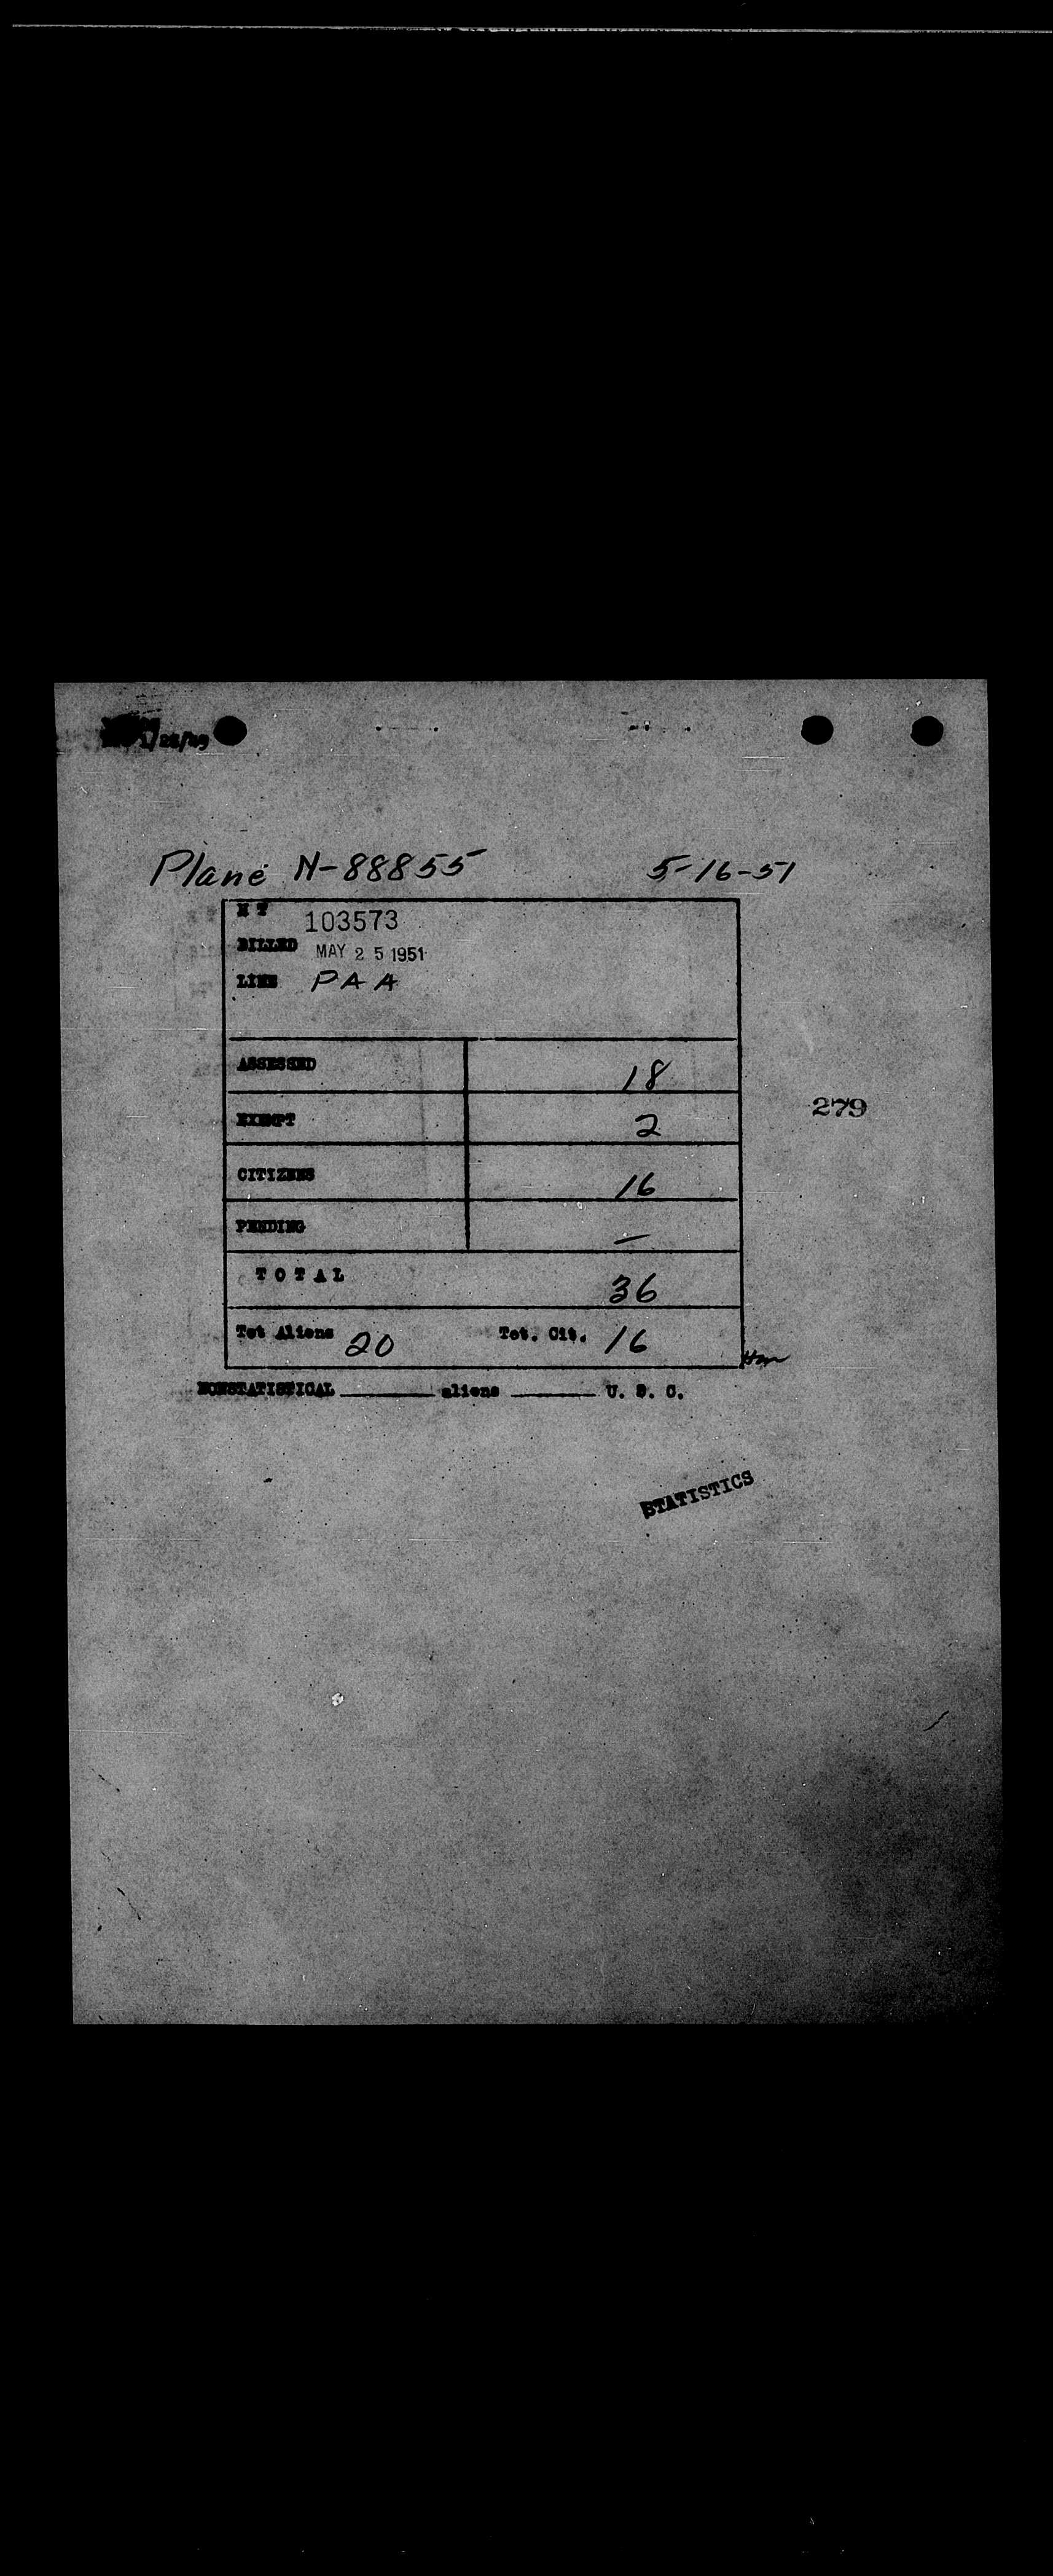 1/28/49
Plane N-88855 5-16-51
H T 103573
BILLED MAY 25 1951
LINE PAA
ASSESSED 18
279
EXEMPT 2
CITIZENS 16
PENDING —
TOTAL 36
Tot Aliens 20 Tot. Cit. 16
NONSTATISTICAL ________ aliens ________ U. S. C.
STATISTICS